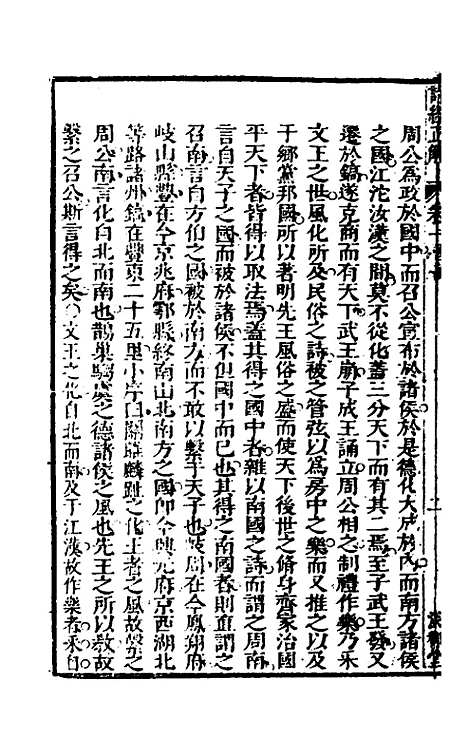 周公為政於國中而召公宣布於諸侯於是德化大成於內而南方諸侯
之國江沱汝漢之間莫不從化蓋三分天下而有其二焉至子武王發又
遷於鎬遂克商而有天下武王崩子成王誦立周公相之制禮作樂乃采
文王之世風化所及民俗之詩被之管弦以為房中之樂而又推之以及
于鄉黨邦國所以著明先王風俗之盛而使天下後世之脩身齊家治國
平天下者皆得以取法焉蓋其得之國中者雜以南國之詩而謂之周南
言自天子之國而被於諸侯不但國中而已也其得之南國者則直謂之
召南言自方伯之國被於南方而不敢以繫于天子也岐周在今鳳翔府
岐山縣豐在今京兆府鄠縣終南山北南方之國即今興元府京西湖北
等路諸州鎬在豐東二十五里小序曰關雎麟趾之化王者之風故繫之
周公南言化自北而南也鵲巢騶虞之德諸侯之風也先王之所以教故
繫之召公斯言得之矣〇文王之化自北而南及于江漢故作樂者采自